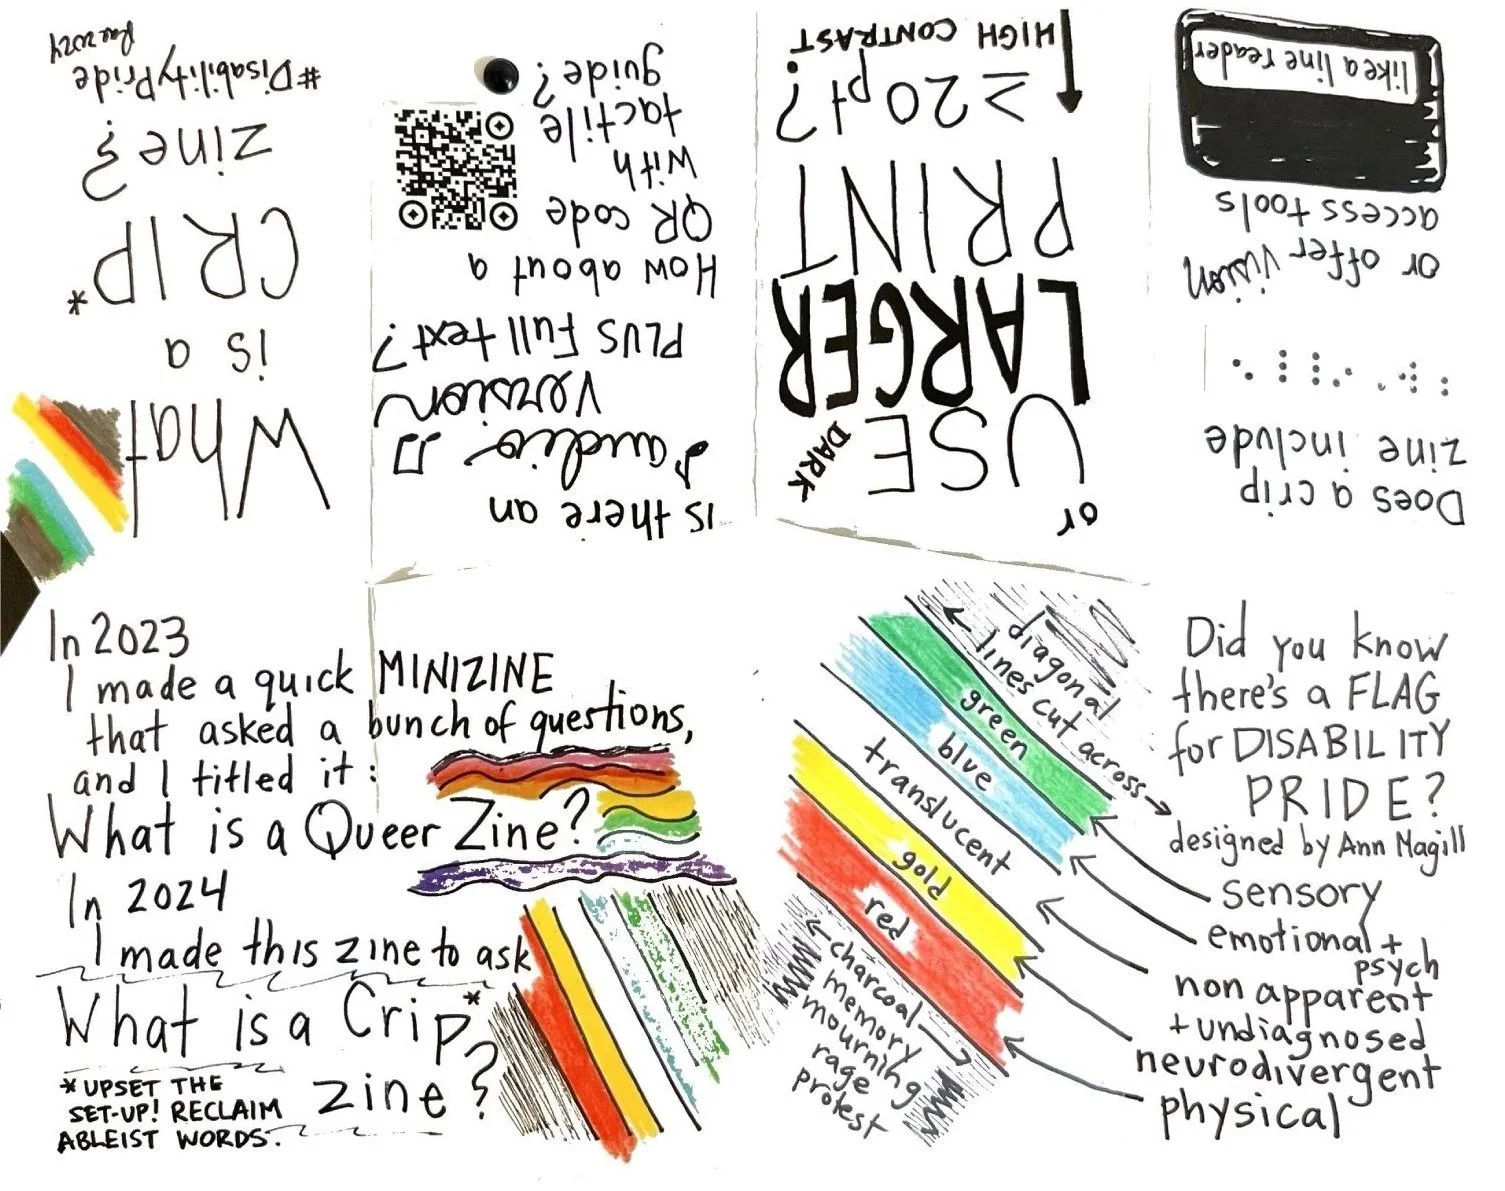 What
is a
CRIP*
zine?
#DisabilityPride
Rae 2024
In 2023
I made a quick MINIZINE
that asked a bunch of questions,
and I titled it:
What is a Queer Zine?
In 2024
I made this zine to ask
What is a Crip*
zine?
* UPSET THE
SET-UP! RECLAIM
ABLEIST WORDS.
diagonal
lines cut across
green
blue
translucent
gold
red
charcoal
memory
mourning
rage
protest
Did you know
there's a FLAG
for DISABILITY
PRIDE?
designed by Ann Magill
sensory
emotional +
psych
non apparent
+ undiagnosed
neurodivergent
physical
Does a crip
zine include
or offer vision
access tools
like a line reader
or
USE
DARK
LARGER
PRINT
≥20pt?
HIGH CONTRAST
is there an
audio
version
PLUS full text?
How about a
QR code
with
tactile
guide?